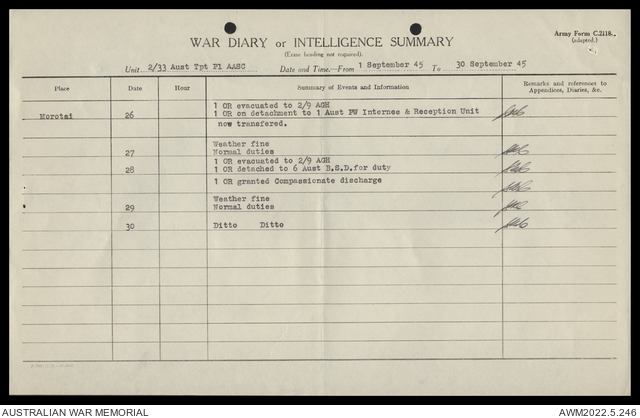 Army Form C.2118.
(adapted.)
WAR DIARY or INTELLIGENCE SUMMARY
(Erase heading not required).
Unit 2/33 Aust Tpt Pl AASC Date and Time.—From 1 September 45 To 30 September 45
Place Date Hour Summary of Events and Information Remarks and references to Appendices, Diaries, &c.
1 OR evacuated to 2/9 AGH
Morotai 26 1 OR on detachment to 1 Aust PW Internee & Reception Unit
now transfered.
Weather fine
27 Normal duties
1 OR evacuated to 2/9 AGH
28 1 OR detached to 6 Aust B.S.D.for duty
1 OR granted Compassionate discharge
Weather fine
29 Normal duties
30 Ditto Ditto
AUSTRALIAN WAR MEMORIAL AWM2022.5.246